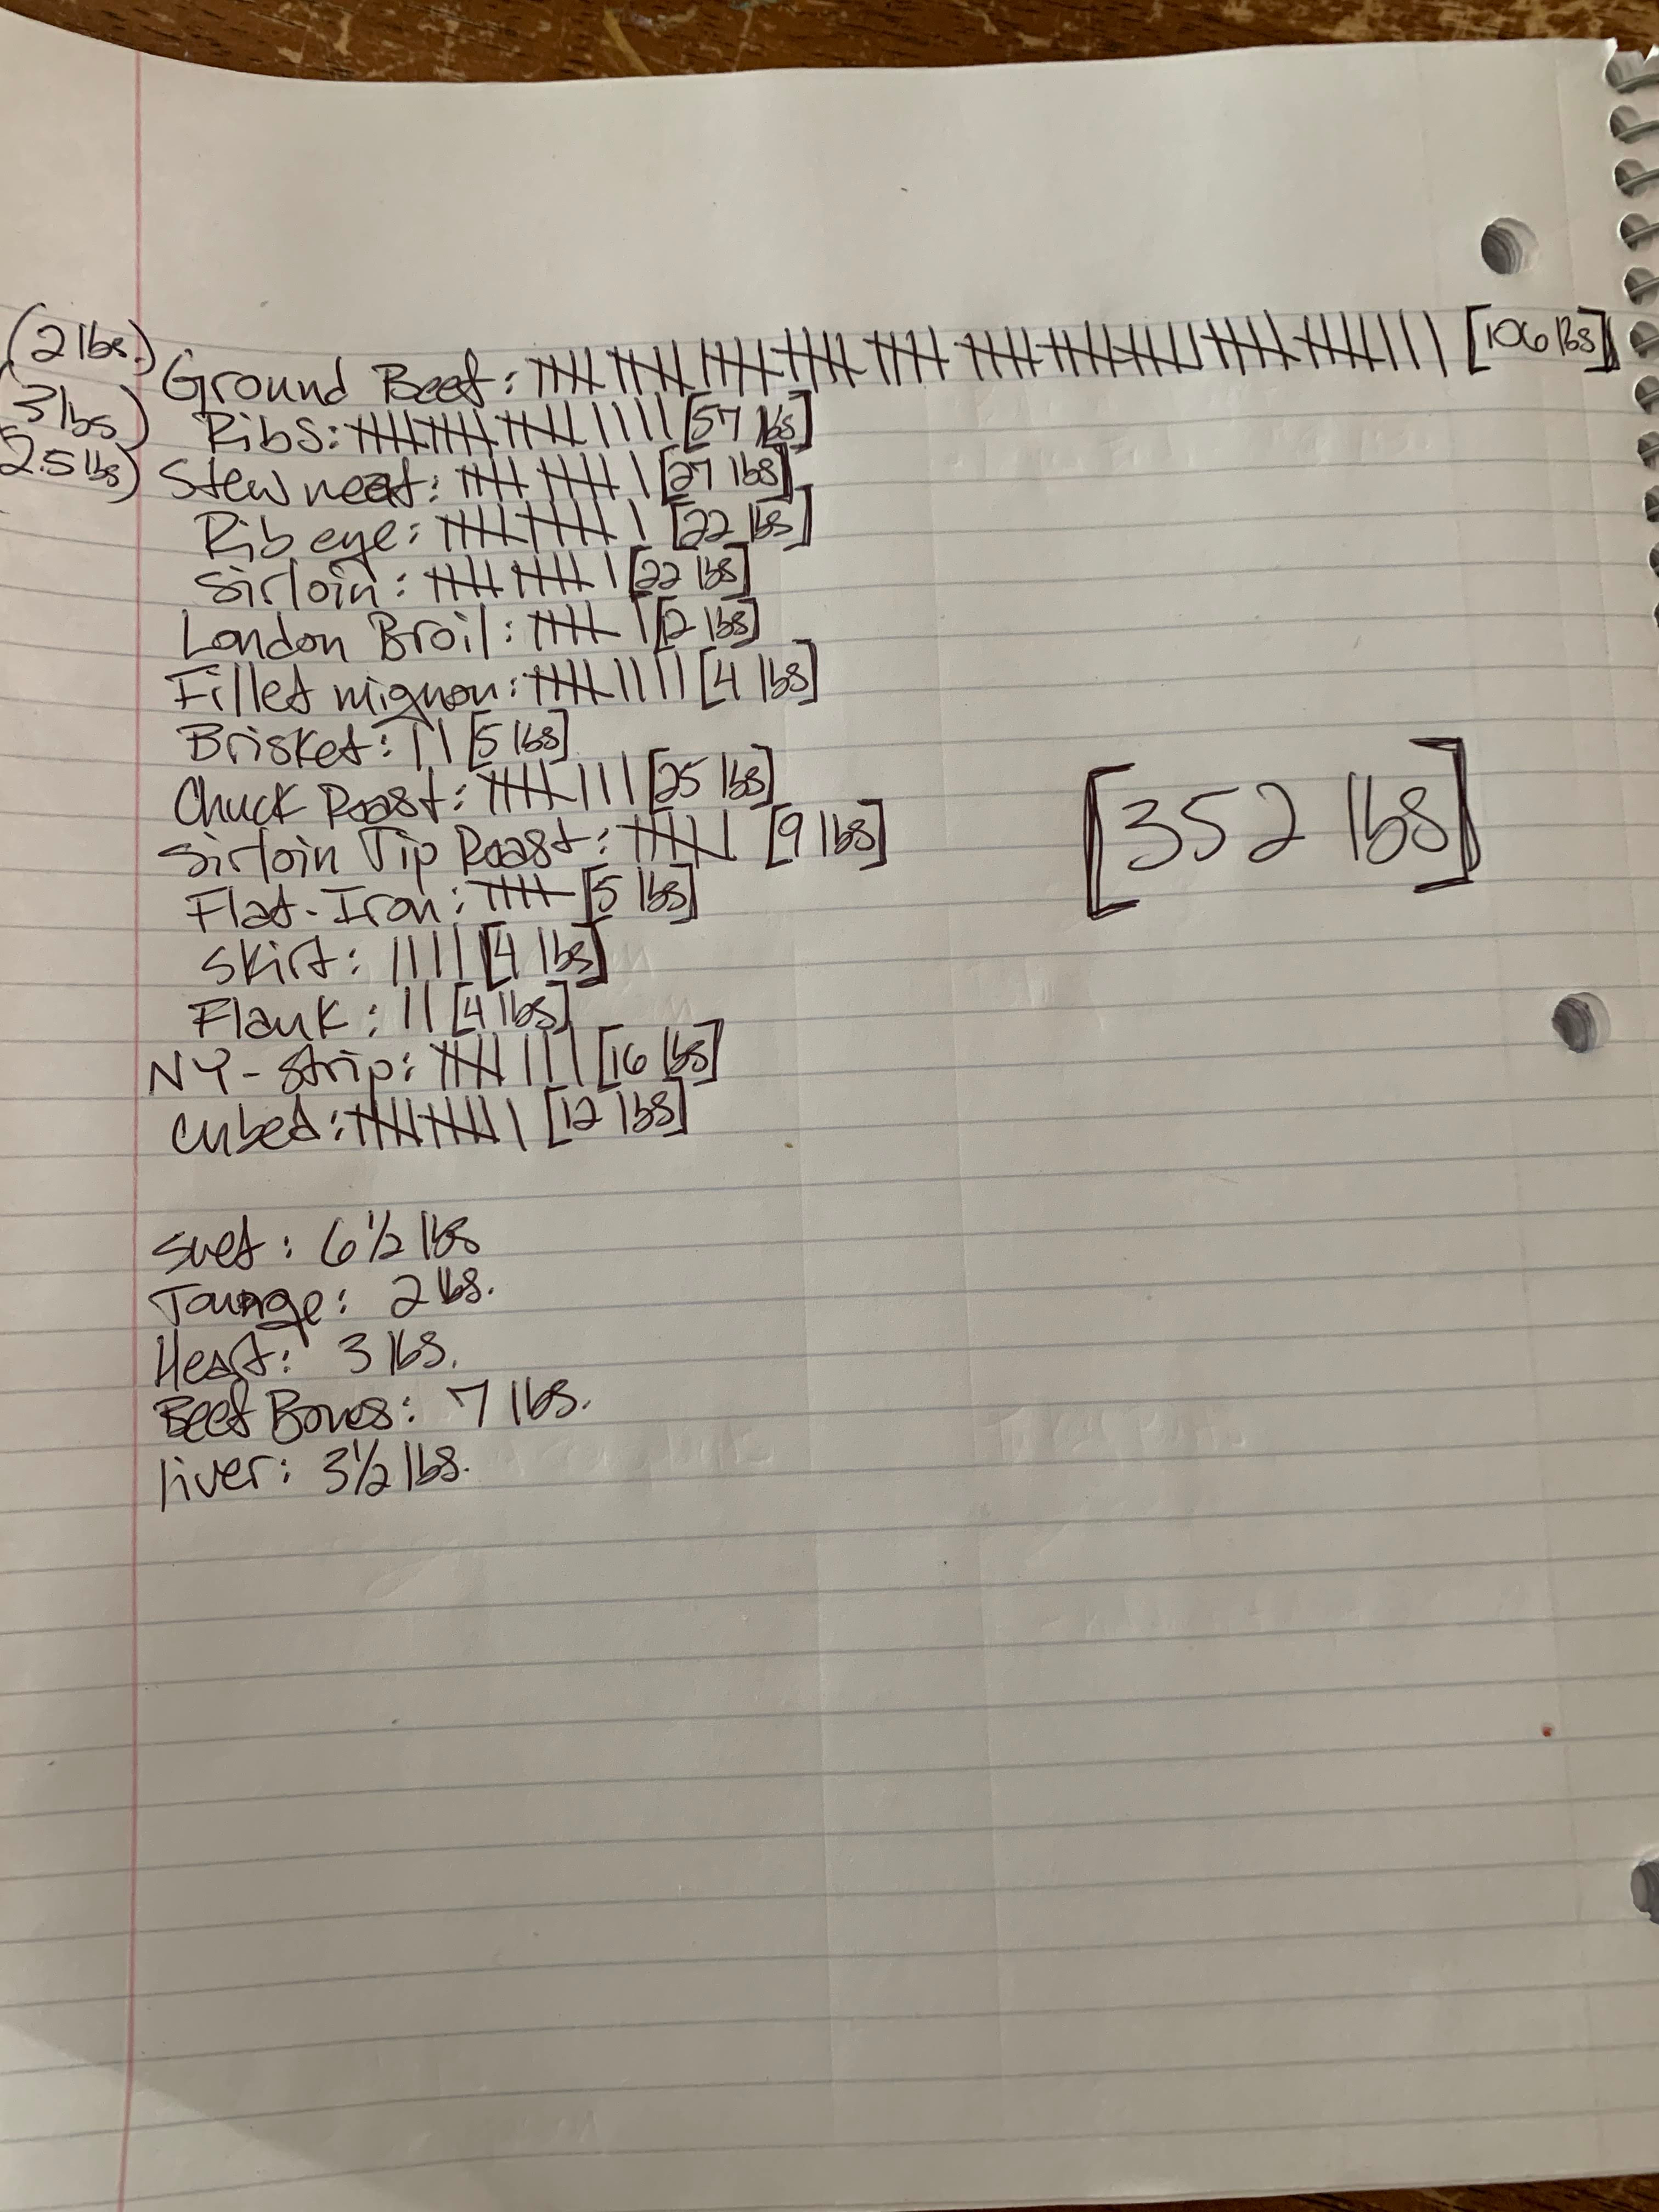 (2 lbs.) Ground Beef: 卌 卌 卌 卌 卌 卌 卌 卌 卌 卌 ||| [106 lbs]
(3 lbs) Ribs: 卌 卌 卌 |||| [57 lbs]
2.5 lbs) Stew meat: 卌 卌 | [27 lbs]
Rib eye: 卌 卌 | [22 lbs]
Sirloin: 卌 卌 | [22 lbs]
London Broil: 卌 | [12 lbs]
Fillet mignon: 卌 |||| [4 lbs]
Brisket: || [5 lbs]
Chuck Roast: 卌 ||| [25 lbs]
Sirloin Tip Roast: 卌 [9 lbs]
Flat-Iron: 卌 [5 lbs]
Skirt: |||| [4 lbs]
Flank: || [4 lbs]
NY-Strip: 卌 ||| [16 lbs]
Cubed: 卌 卌 | [12 lbs]
[352 lbs]
Suet: 6 1/2 lbs
Tounge: 2 lbs.
Heart: 3 lbs.
Beef Bones: 7 lbs.
liver: 3 1/2 lbs.